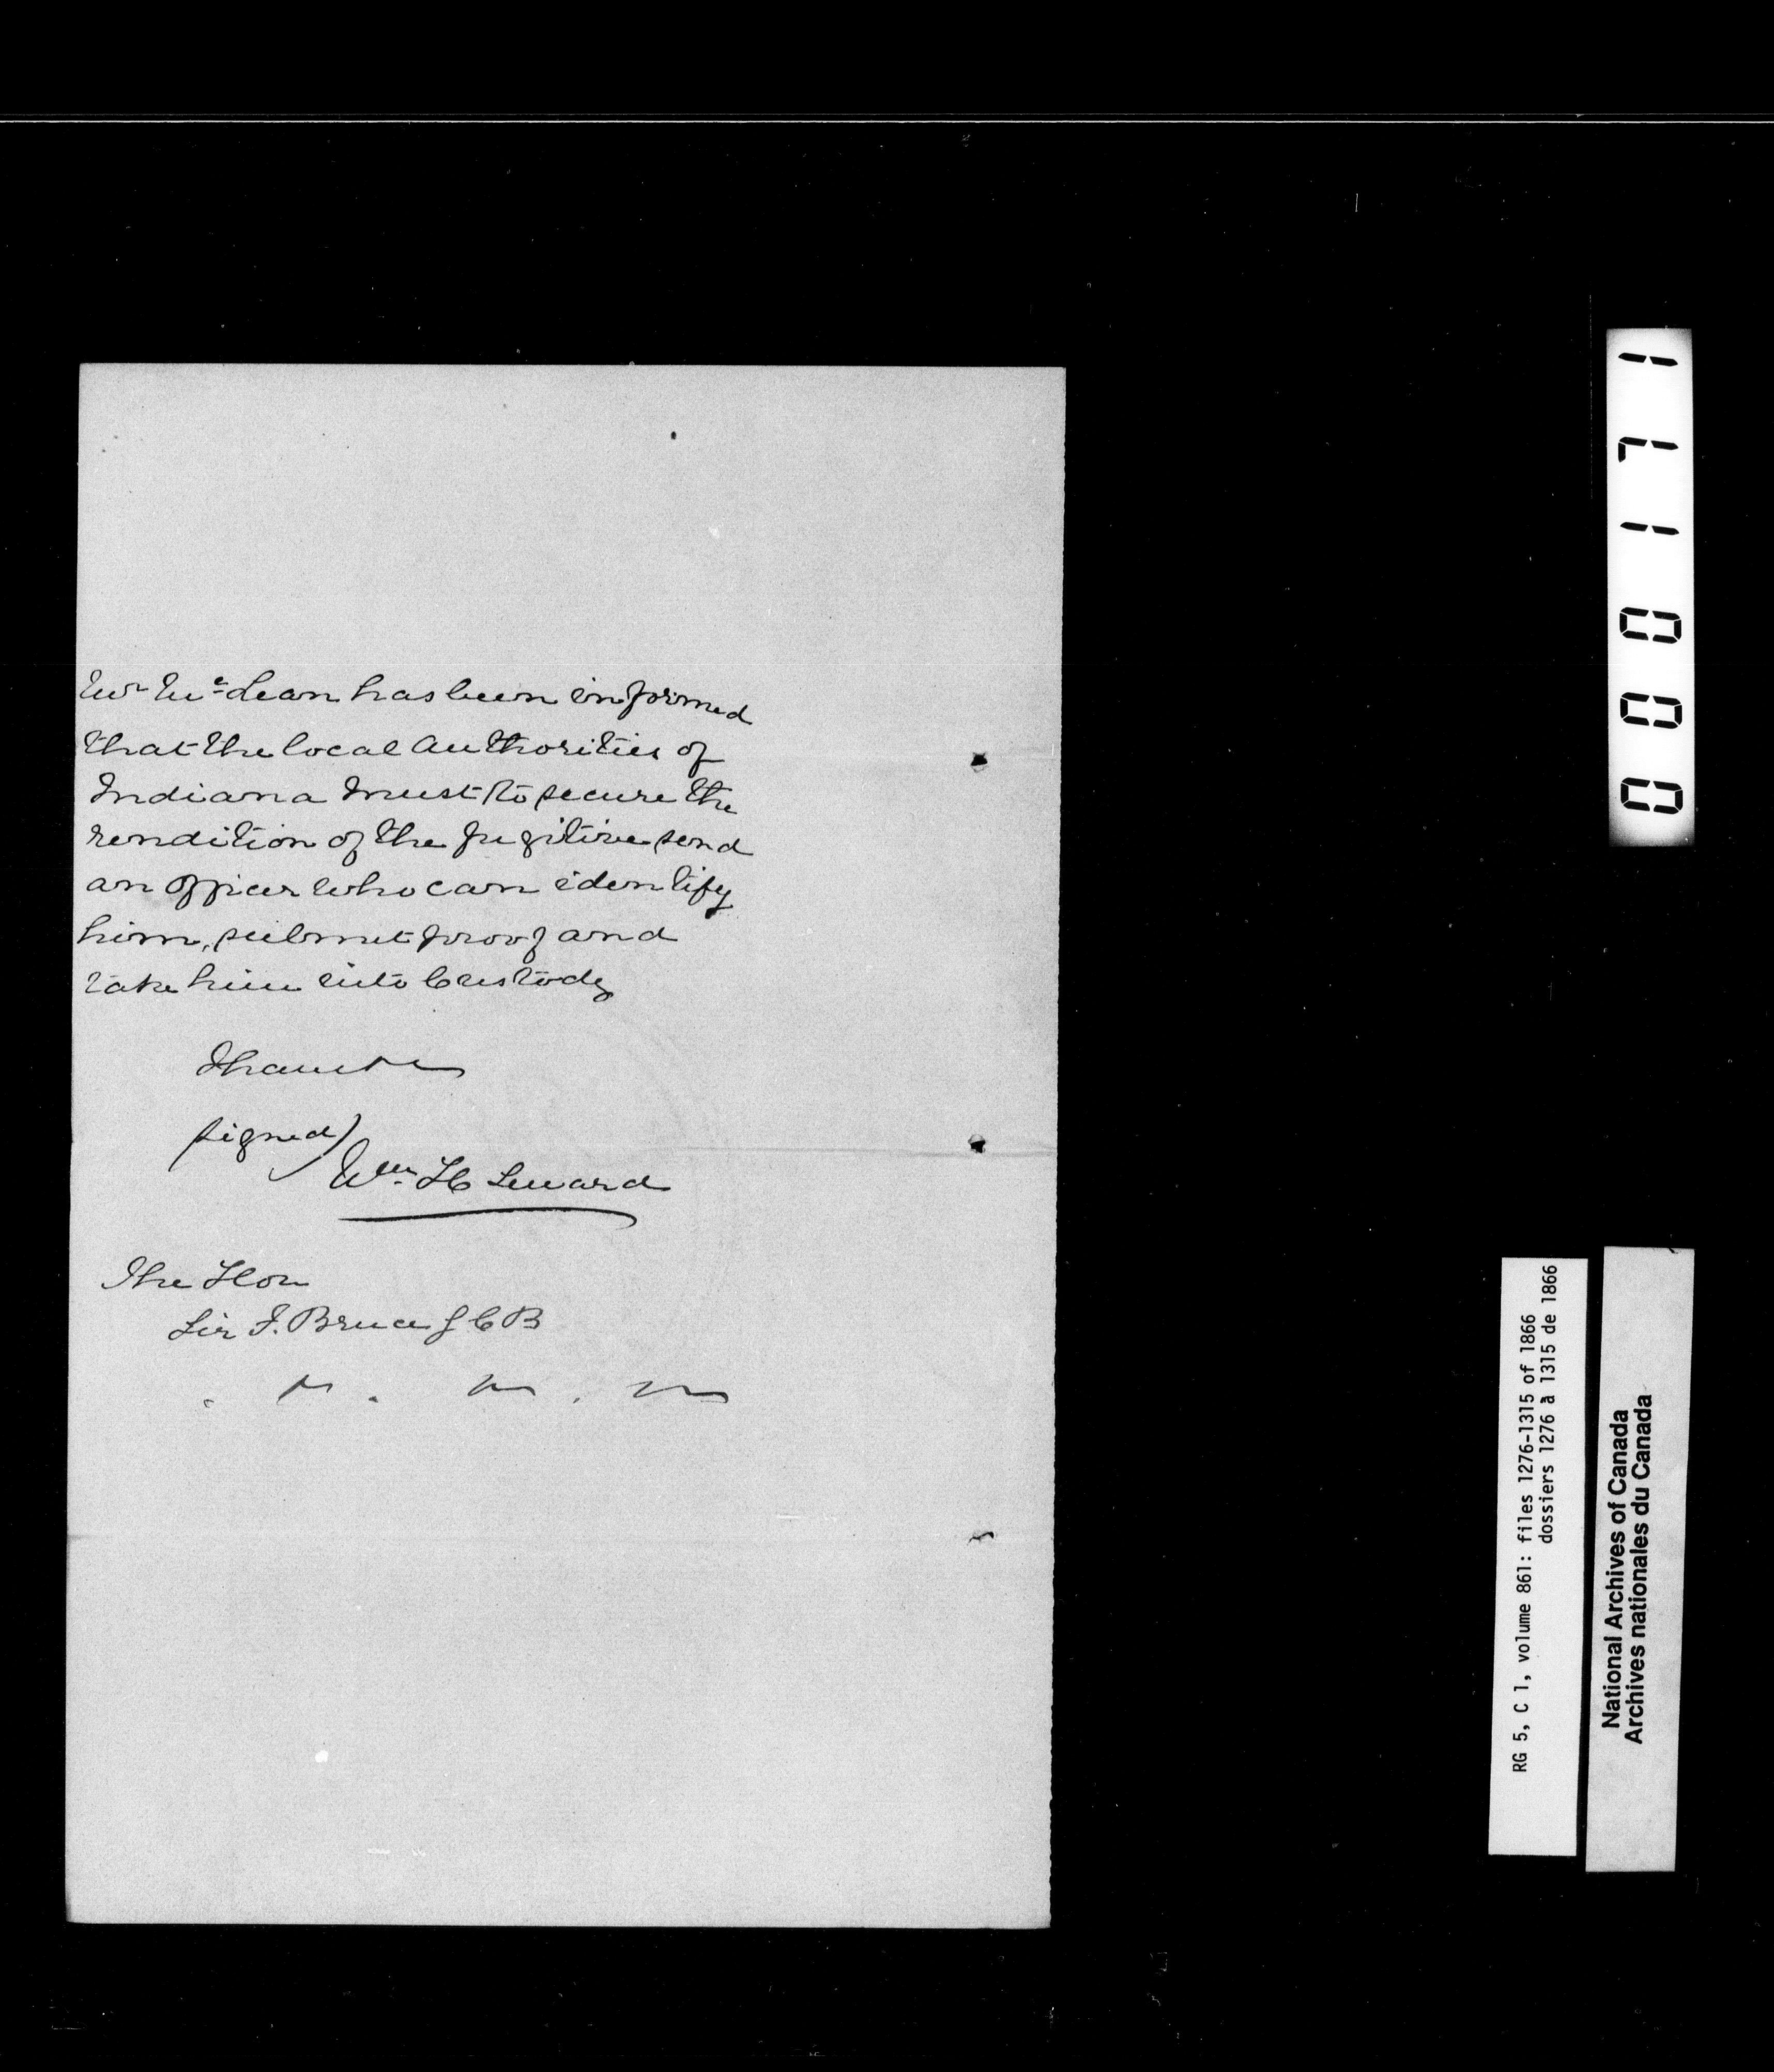 Mr McLean has been informed
that the local Authorities of
Indiana must to secure the
rendition of the fugitive send
an officer who can identify
him, submit proof and
take him into Custody
I have &c
(signed)
Wm H Seward
The Hon
Sir F. Bruce G C B
&c. &c. &c
000171
RG 5, C 1, volume 861: files 1276-1315 of 1866
dossiers 1276 à 1315 de 1866
National Archives of Canada
Archives nationales du Canada